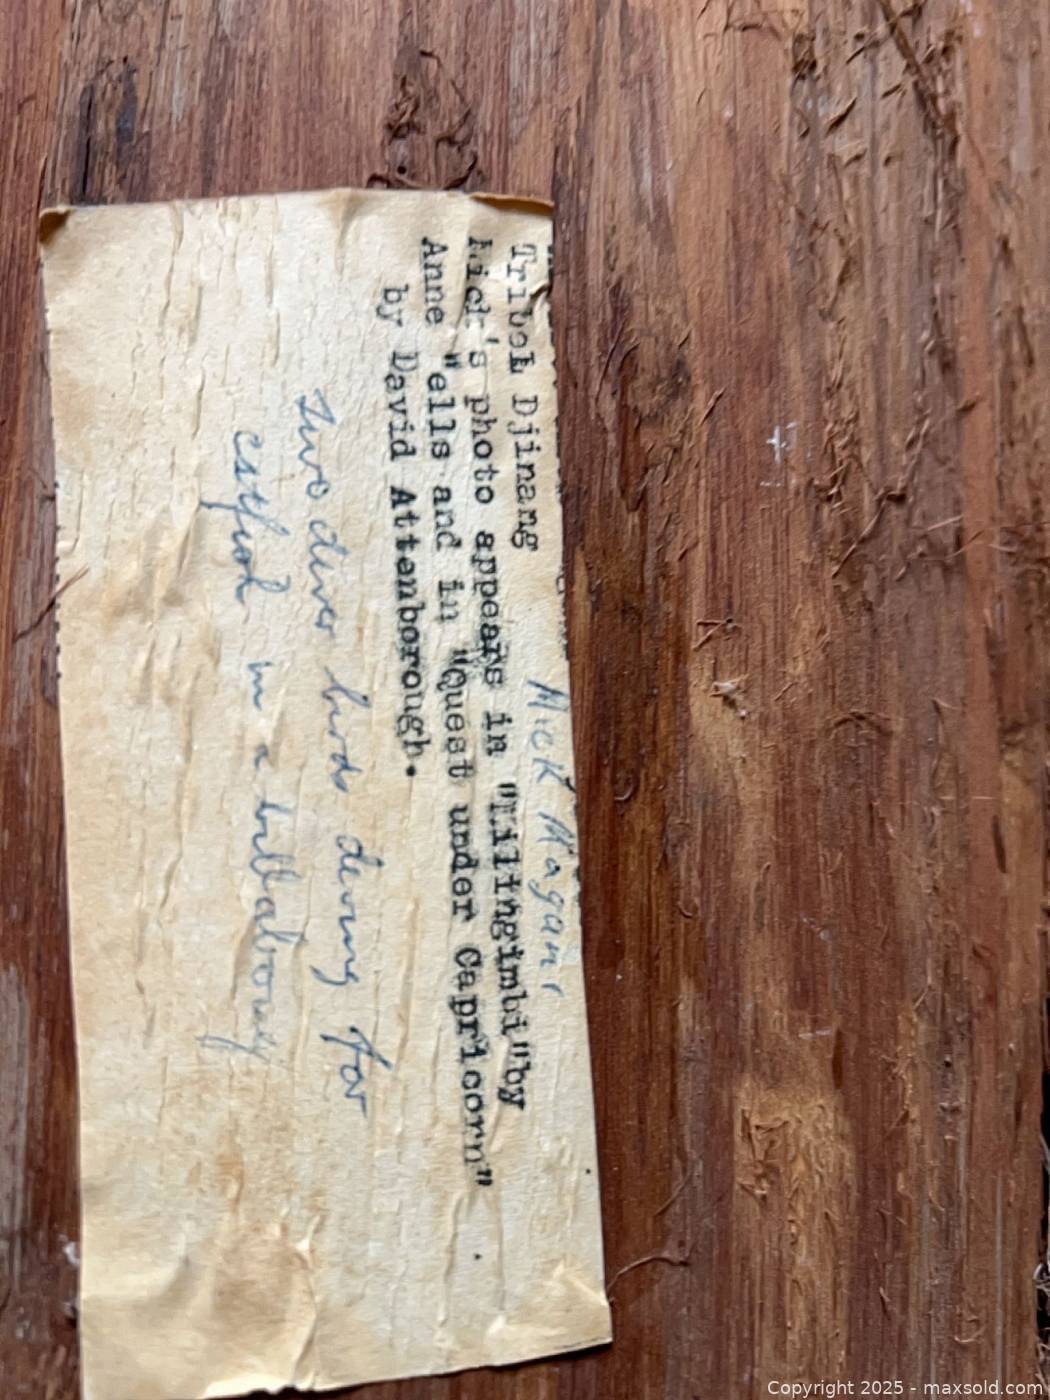 Mick Magani
Tribe: Djinang
Mick's photo appears in "Milingimbi" by
Anne Wells and in "Quest under Capricorn"
by David Attenborough.
Two diver birds diving for
catfish in a billabong
Copyright 2025 - maxsold.com